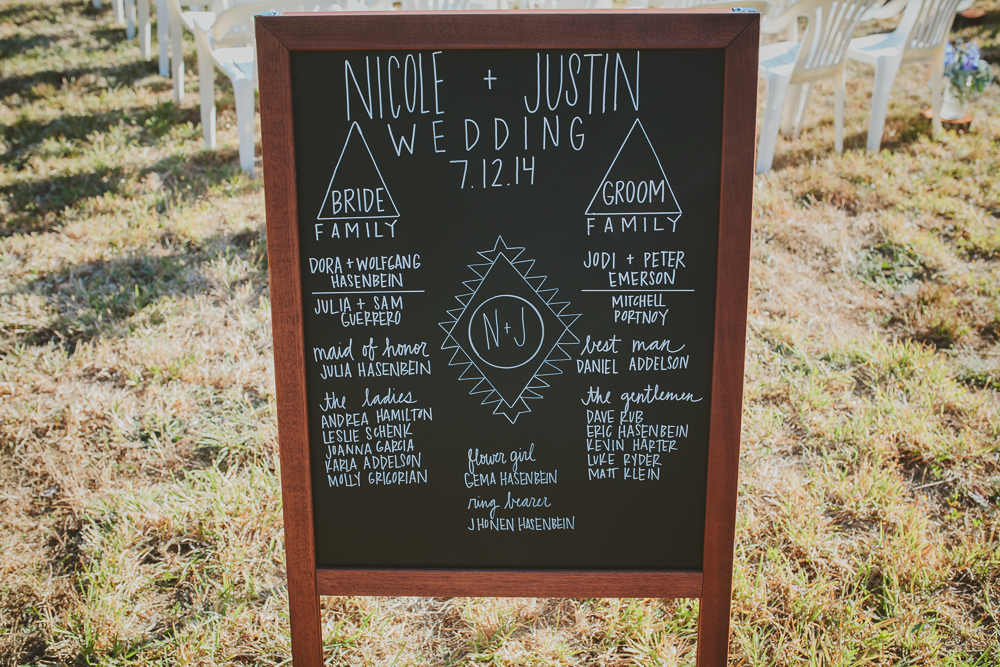 NICOLE + JUSTIN
WEDDING
7.12.14
BRIDE
FAMILY
DORA + WOLFGANG
HASENBEIN
JULIA + SAM
GUERRERO
maid of honor
JULIA HASENBEIN
the ladies
ANDREA HAMILTON
LESLIE SCHENK
JOANNA GARCIA
KARLA ADDELSON
MOLLY GRIGORIAN
N+J
flower girl
GEMA HASENBEIN
ring bearer
JHONEN HASENBEIN
GROOM
FAMILY
JODI + PETER
EMERSON
MITCHELL
PORTNOY
best man
DANIEL ADDELSON
the gentlemen
DAVE KUB
ERIC HASENBEIN
KEVIN HARTER
LUKE RYDER
MATT KLEIN